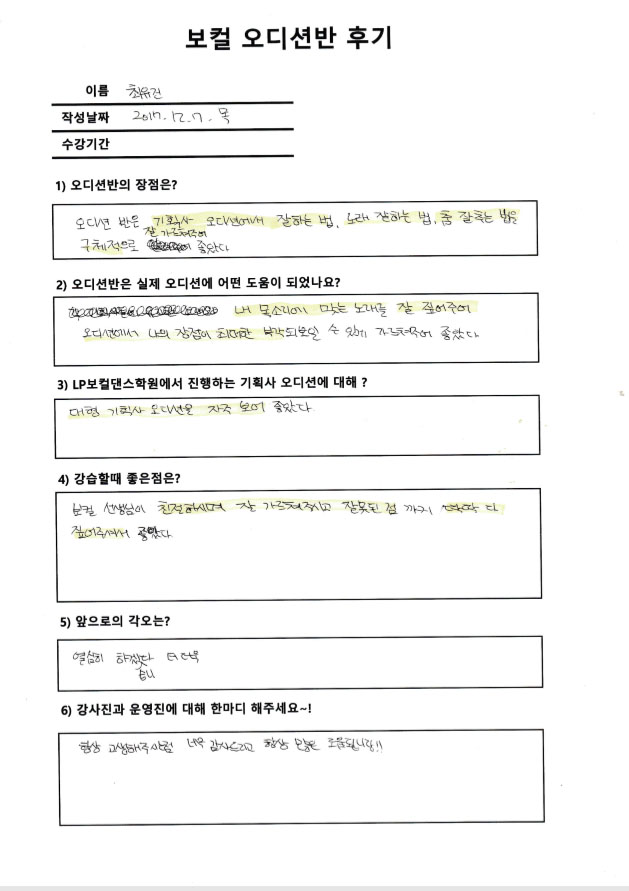 보컬 오디션반 후기
이름 최유건
작성날짜 2017. 12. 7. 목
수강기간
1) 오디션반의 장점은?
오디션 반은 기획사 오디션에서 잘하는 법, 노래 잘하는 법, 춤 잘추는 법을
잘 가르쳐주어
구체적으로 좋았다
2) 오디션반은 실제 오디션에 어떤 도움이 되었나요?
내 목소리에 맞는 노래를 잘 짚어주어
오디션에서 나의 장점이 최대한 부각되보일 수 있게 가르쳐주어 좋았다.
3) LP보컬댄스학원에서 진행하는 기획사 오디션에 대해 ?
대형 기획사 오디션을 자주 보어 좋았다.
4) 강습할때 좋은점은?
보컬 선생님이 친절하시며 잘 가르쳐주시고 잘못된 점 까지 딱딱 다
짚어주셔서 좋았다
5) 앞으로의 각오는?
열심히 하겠다 더 더욱
습니
6) 강사진과 운영진에 대해 한마디 해주세요~!
항상 너무 감사드리고 항상 많은 도움됩니다!!